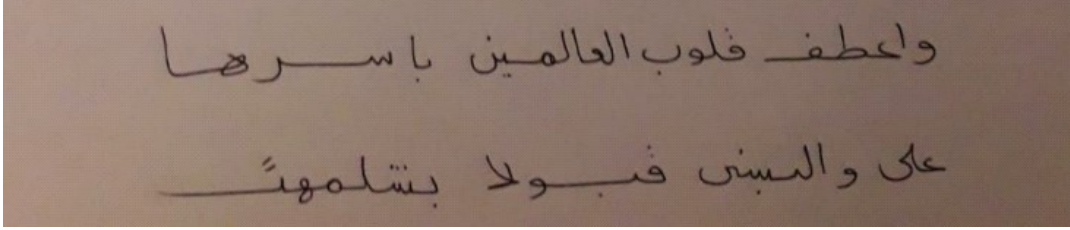 واعطف قلوب العالمين باسرها
على والبسنى قبولا بشلمهت